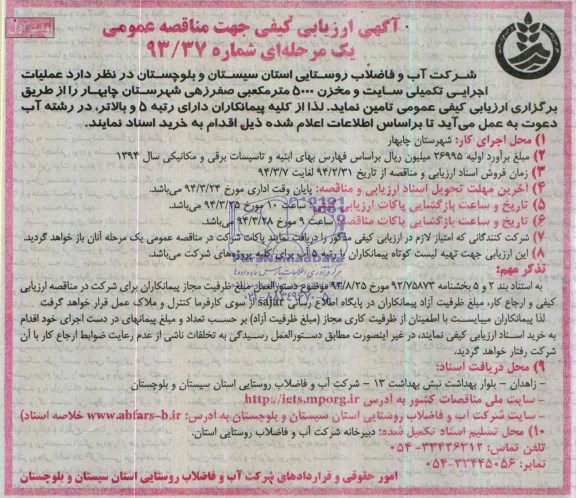 آگهی ارزیابی کیفی جهت مناقصه عمومی
یک مرحله‌ای شماره ۹۳/۳۷
شرکت آب و فاضلاب روستایی استان سیستان و بلوچستان در نظر دارد عملیات
اجرایی تکمیلی سایت و مخزن ۵۰۰۰ مترمکعبی صفرزهی شهرستان چابهار را از طریق
برگزاری ارزیابی کیفی عمومی تامین نماید. لذا از کلیه پیمانکاران دارای رتبه ۵ و بالاتر، در رشته آب
دعوت به عمل می‌آید تا براساس اطلاعات اعلام شده ذیل اقدام به خرید اسناد نمایند.
۱) محل اجرای کار: شهرستان چابهار
۲) مبلغ برآورد اولیه ۲۶۹۹۵ میلیون ریال براساس فهارس بهای ابنیه و تاسیسات برقی و مکانیکی سال ۱۳۹۴
۳) زمان فروش اسناد ارزیابی و مناقصه از تاریخ ۹۴/۲/۳۱ لغایت ۹۴/۳/۷
۴) آخرین مهلت تحویل اسناد ارزیابی و مناقصه: پایان وقت اداری مورخ ۹۴/۳/۲۴ می‌باشد.
۵) تاریخ و ساعت بازگشایی پاکات ارزیابی ساعت ۱۰ مورخ ۹۴/۳/۲۵ می‌باشد.
۶) تاریخ و ساعت بازگشایی پاکات مناقصه ساعت ۹ مورخ ۹۴/۳/۲۸ می‌باشد.
۷) شرکت کنندگانی که امتیاز لازم در ارزیابی کیفی مذکور را دریافت نمایند پاکات شرکت در مناقصه عمومی یک مرحله آنان باز خواهد گردید.
۸) این ارزیابی جهت تهیه لیست کوتاه پیمانکاران با رتبه ۵ آب برای کلیه پروژه‌های شرکت می‌باشد.
تذکر مهم:
به استناد بند ۲ و ۵ بخشنامه ۹۲/۷۵۸۷۳ مورخ ۹۳/۸/۲۵ موضوع دستورالعمل مبلغ ظرفیت مجاز پیمانکاران برای شرکت در مناقصه ارزیابی
کیفی و ارجاع کار، مبلغ ظرفیت آزاد پیمانکاران در پایگاه اطلاع رسانی sajar از سوی کارفرما کنترل و ملاک عمل قرار خواهد گرفت
لذا پیمانکاران میبایست با اطمینان از ظرفیت کاری مجاز (مبلغ ظرفیت آزاد) بر حسب تعداد و مبلغ پیمانهای در دست اجرای خود اقدام
به خرید اسناد ارزیابی کیفی نمایند، در غیر اینصورت مطابق دستورالعمل رسیدگی به تخلفات ناشی از عدم رعایت ضوابط ارجاع کار با آن
شرکت رفتار خواهد گردید.
۹) محل دریافت اسناد:
- زاهدان - بلوار بهداشت نبش بهداشت ۱۳ - شرکت آب و فاضلاب روستایی استان سیستان و بلوچستان
- سایت ملی مناقصات کشور به آدرس http://iets.mporg.ir
- سایت شرکت آب و فاضلاب روستایی استان سیستان و بلوچستان به آدرس: www.abfars-b.ir خلاصه اسناد)
۱۰) محل تسلیم اسناد تکمیل شده: دبیرخانه شرکت آب و فاضلاب روستایی استان.
تلفن تماس: ۳۳۴۳۶۳۱۴-۰۵۴
نمابر: ۳۳۴۴۵۰۵۶-۰۵۴
امور حقوقی و قراردادهای شرکت آب و فاضلاب روستایی استان سیستان و بلوچستان